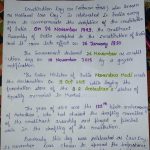 Constitution Day (or National Law), also known
as National Law Day, is celebrated in India every
year to commemorate the adoption of the constitution
of India. On 26 November 1949, the Constituent
Assembly of India adopted to the constitution of India, and
it came into effect on 26 January 1950
The Government declared 26 November as constitution
day on 19 November 2015 by a gazette
notification.
The Prime Minister of India Narendra Modi made
the declaration on 11 Oct 2015 while laying the
foundation stone of the B.R. Ambedkar's statue of
Equality memorial in Mumbai.
The year of 2015 was the 125th birth anniversary
of Ambedkar, who had chaired the drafting committee
of the constituent assembly and played a pivotal
role in the drafting of the constitution.
Previously this day was celebrated as Law Day.
26 November was chosen to spread the importance